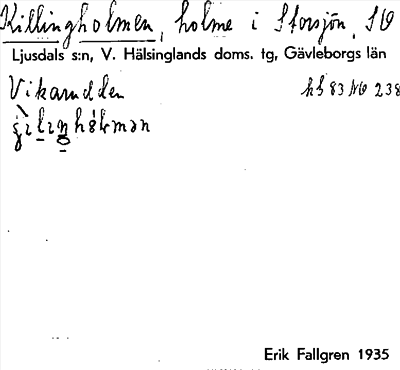 Killingholmen, holme i Storsjön, SO
Ljusdals s:n, V. Hälsinglands doms. tg, Gävleborgs län
Vikarudden
hb 83 NO 238
Erik Fallgren 1935